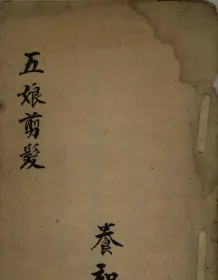 五娘剪髮
養和